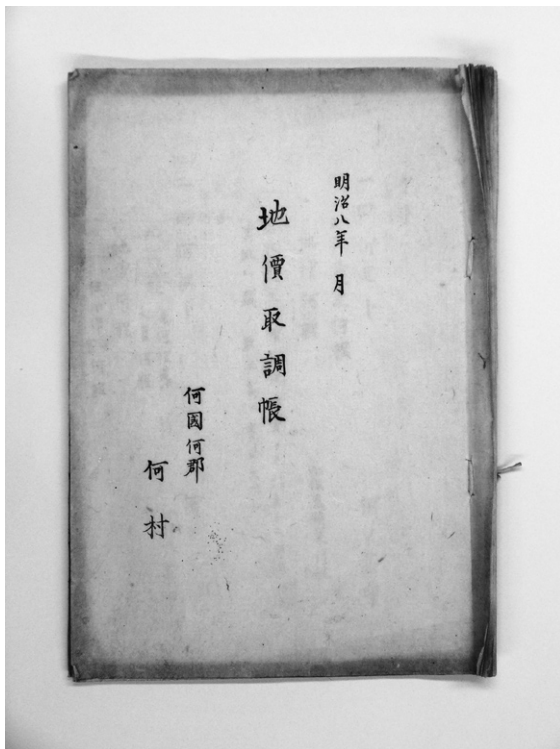 明治八年 月
地價取調帳
何国何郡
何村